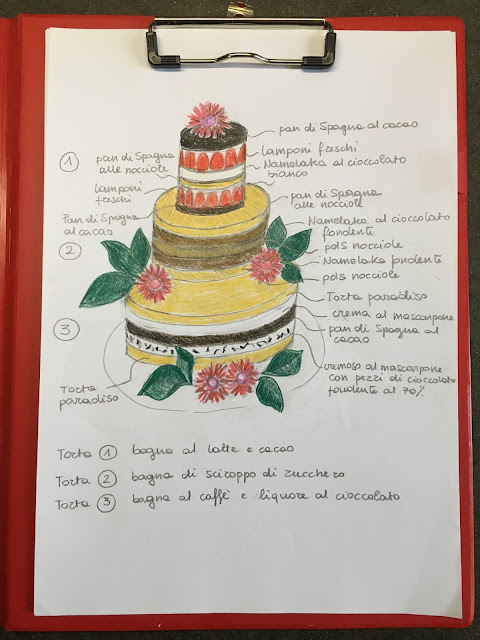 pan di Spagna al cacao
① pan di Spagna
alle nocciole
lamponi freschi
Namelaka al cioccolato
bianco
lamponi
freschi
pan di Spagna
alle nocciole
Pan di Spagna
al cacao
②
Namelaka al cioccolato
fondente
pds nocciole
Namelaka fondente
pds nocciole
③
Torta paradiso
crema al mascarpone
pan di Spagna al
cacao
cremoso al mascarpone
con pezzi di cioccolato
fondente al 70%
Torta
paradiso
Torta ① bagna al latte e cacao
Torta ② bagna di sciroppo di zucchero
Torta ③ bagna al caffè e liquore al cioccolato